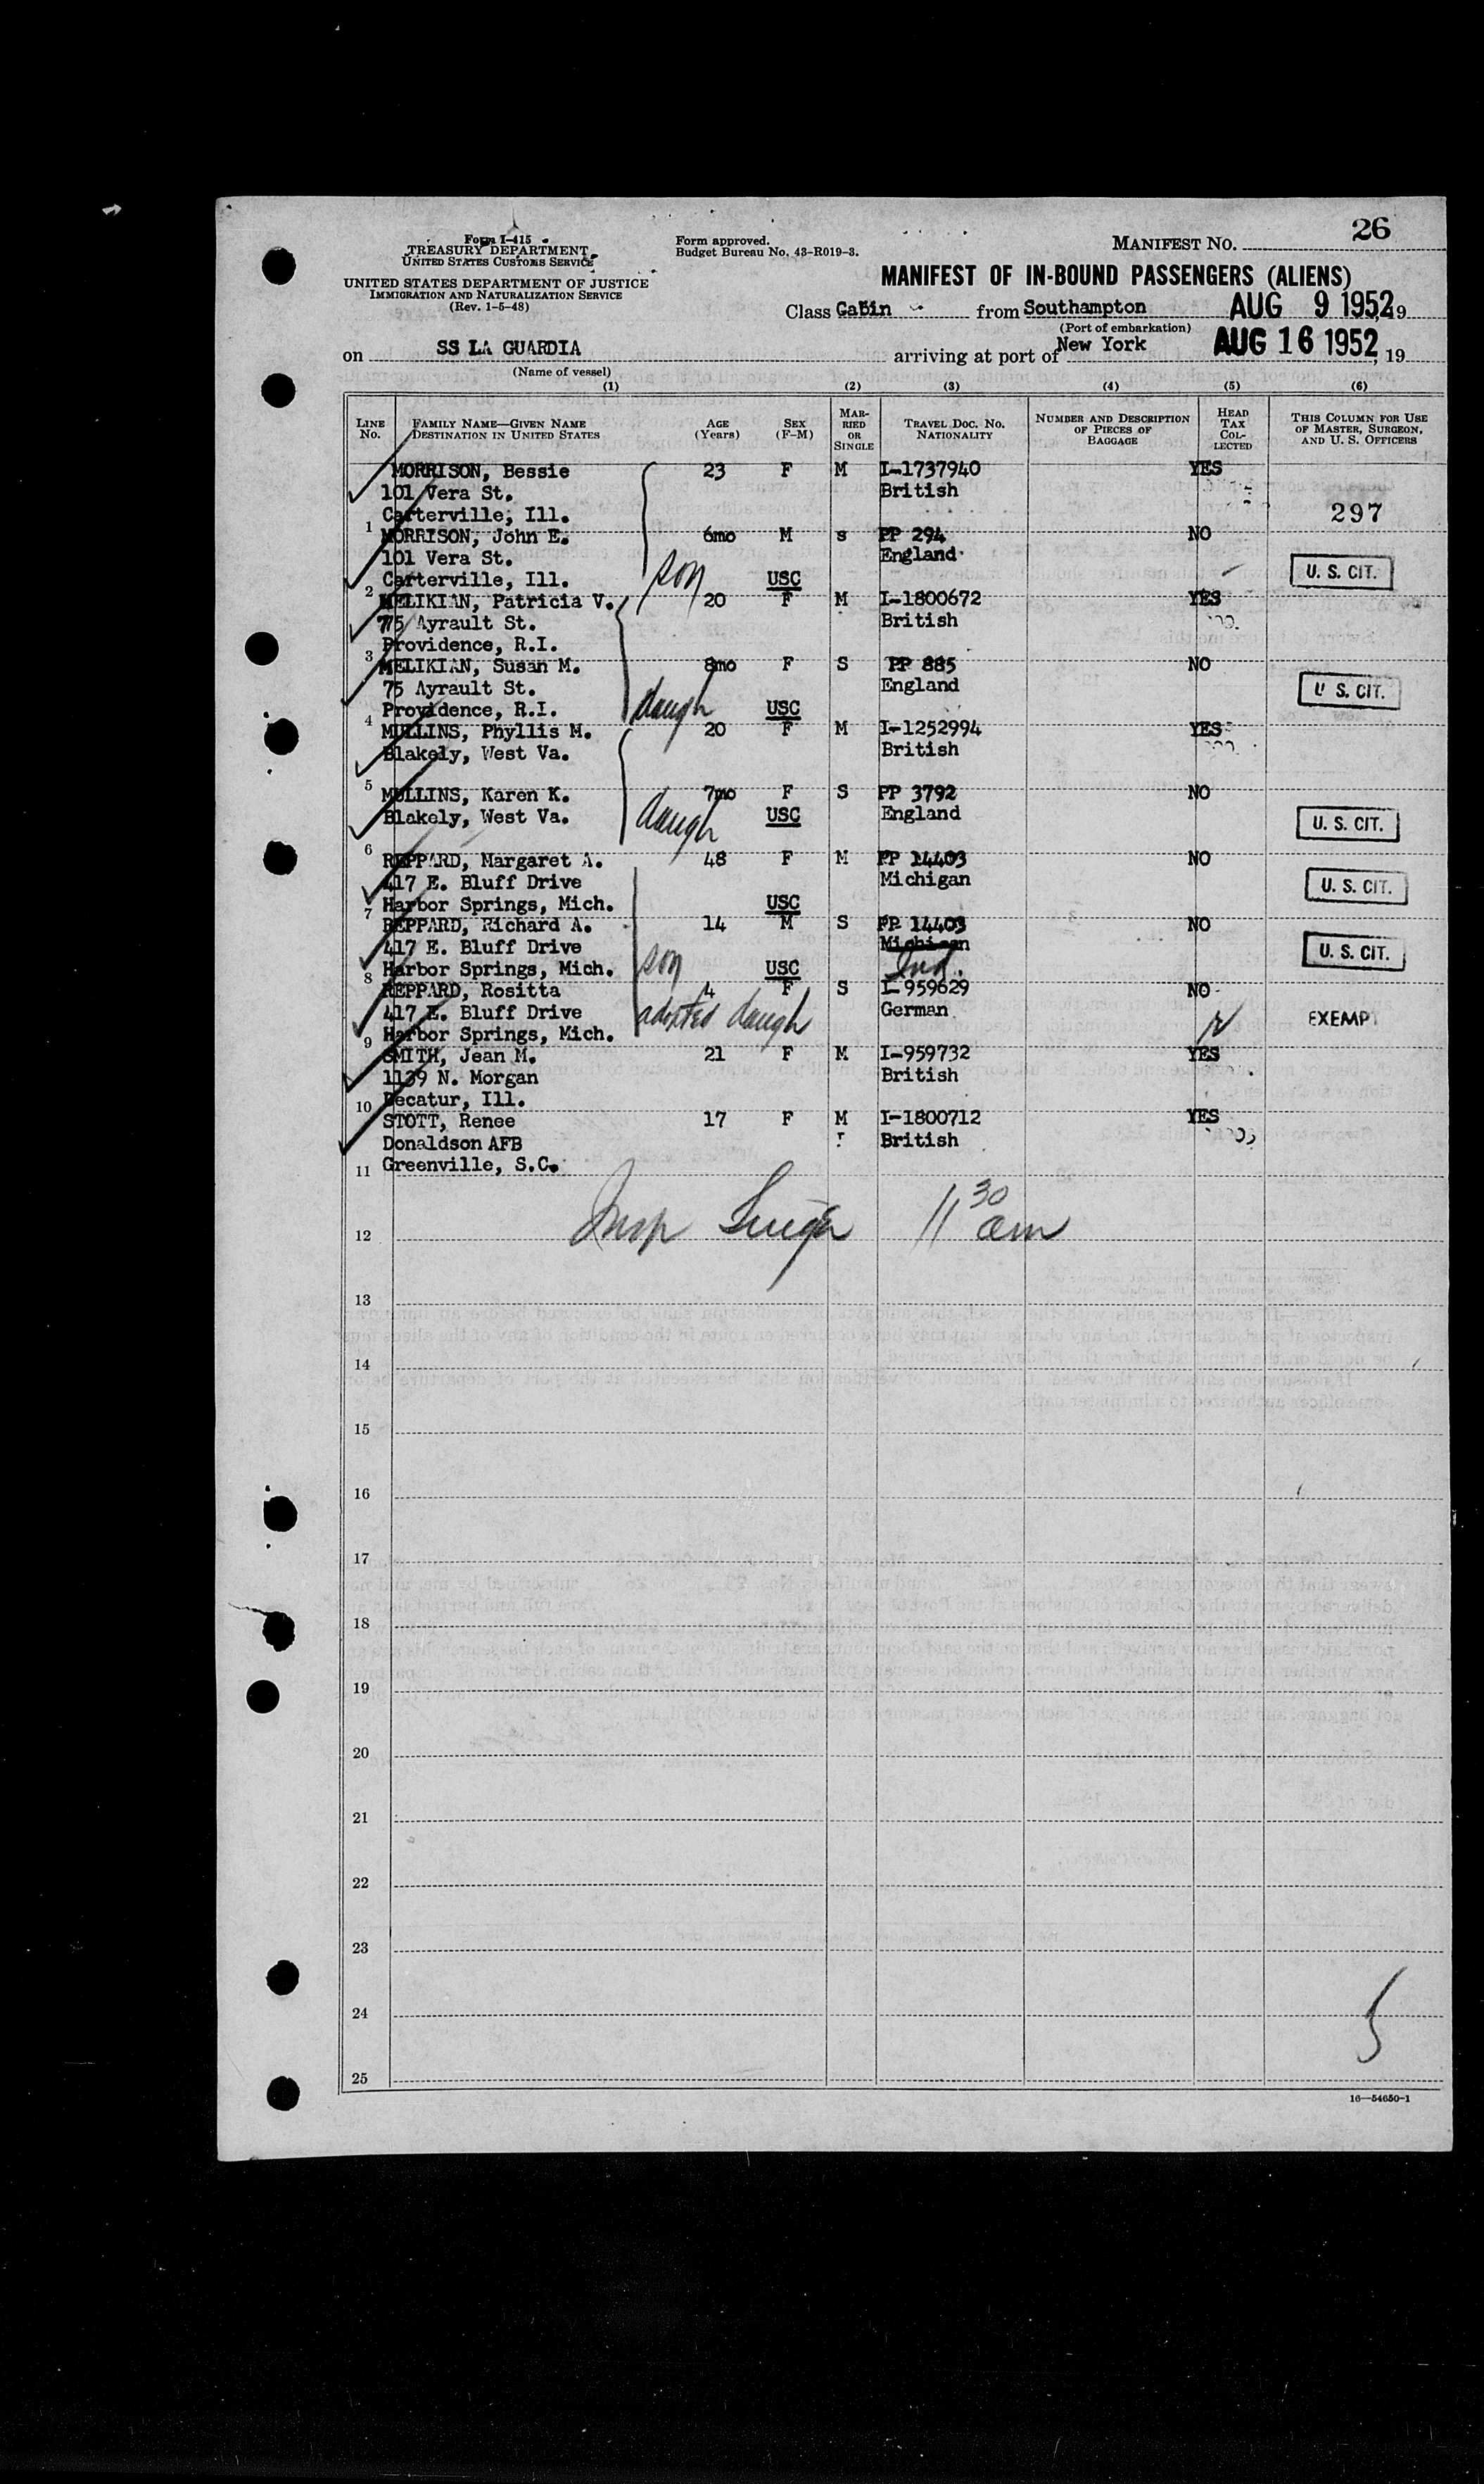 Form I-415
TREASURY DEPARTMENT
UNITED STATES CUSTOMS SERVICE
UNITED STATES DEPARTMENT OF JUSTICE
IMMIGRATION AND NATURALIZATION SERVICE
(Rev. 1-5-48)
Form approved.
Budget Bureau No. 43-R019-3.
MANIFEST NO. 26
MANIFEST OF IN-BOUND PASSENGERS (ALIENS)
Class Cabin from Southampton AUG 9 1952, 19
(Port of embarkation)
on SS LA GUARDIA arriving at port of New York AUG 16 1952, 19
(Name of vessel)
(1) (2) (3) (4) (5) (6)
LINE No. FAMILY NAME—GIVEN NAME DESTINATION IN UNITED STATES AGE (Years) SEX (F-M) MARRIED OR SINGLE TRAVEL DOC. NO. NATIONALITY NUMBER AND DESCRIPTION OF PIECES OF BAGGAGE HEAD TAX COLLECTED THIS COLUMN FOR USE OF MASTER, SURGEON, AND U. S. OFFICERS
MORRISON, Bessie 23 F M I-1737940 YES
101 Vera St. British
Carterville, Ill. 297
1 MORRISON, John E. 6mo M s PP 294 NO
101 Vera St. England
Carterville, Ill. son USC U. S. CIT.
2 MELIKIAN, Patricia V. 20 F M I-1800672 YES
75 Ayrault St. British
Providence, R.I.
3 MELIKIAN, Susan M. 8mo F S PP 885 NO
75 Ayrault St. England
Providence, R.I. daugh USC U. S. CIT.
4 MULLINS, Phyllis M. 20 F M I-1252994 YES
Blakely, West Va. British
5 MULLINS, Karen K. 7mo F S PP 3792 NO
Blakely, West Va. daugh USC England U. S. CIT.
6 REPPARD, Margaret A. 48 F M PP 14403 NO
417 E. Bluff Drive Michigan U. S. CIT.
Harbor Springs, Mich. USC
7 REPPARD, Richard A. 14 M S PP 14403 NO
417 E. Bluff Drive Michigan U. S. CIT.
Harbor Springs, Mich. son USC Ind.
8 REPPARD, Rositta 4 F S I-959629 NO
417 E. Bluff Drive adopted daugh German EXEMPT
Harbor Springs, Mich.
9 SMITH, Jean M. 21 F M I-959732 YES
1139 N. Morgan British
Decatur, Ill.
10 STOTT, Renee 17 F M I-1800712 YES
Donaldson AFB British
Greenville, S.C.
11
Insp 11 30 am
12
13
14
15
16
17
18
19
20
21
22
23
24
25
16—54650-1